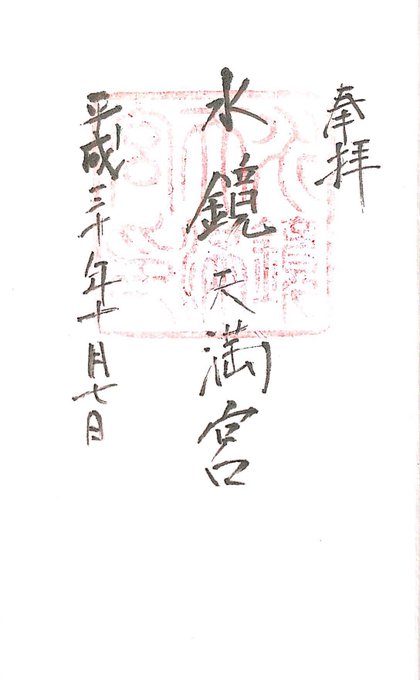 奉拝
水鏡天満宮
平成三十年十月七日